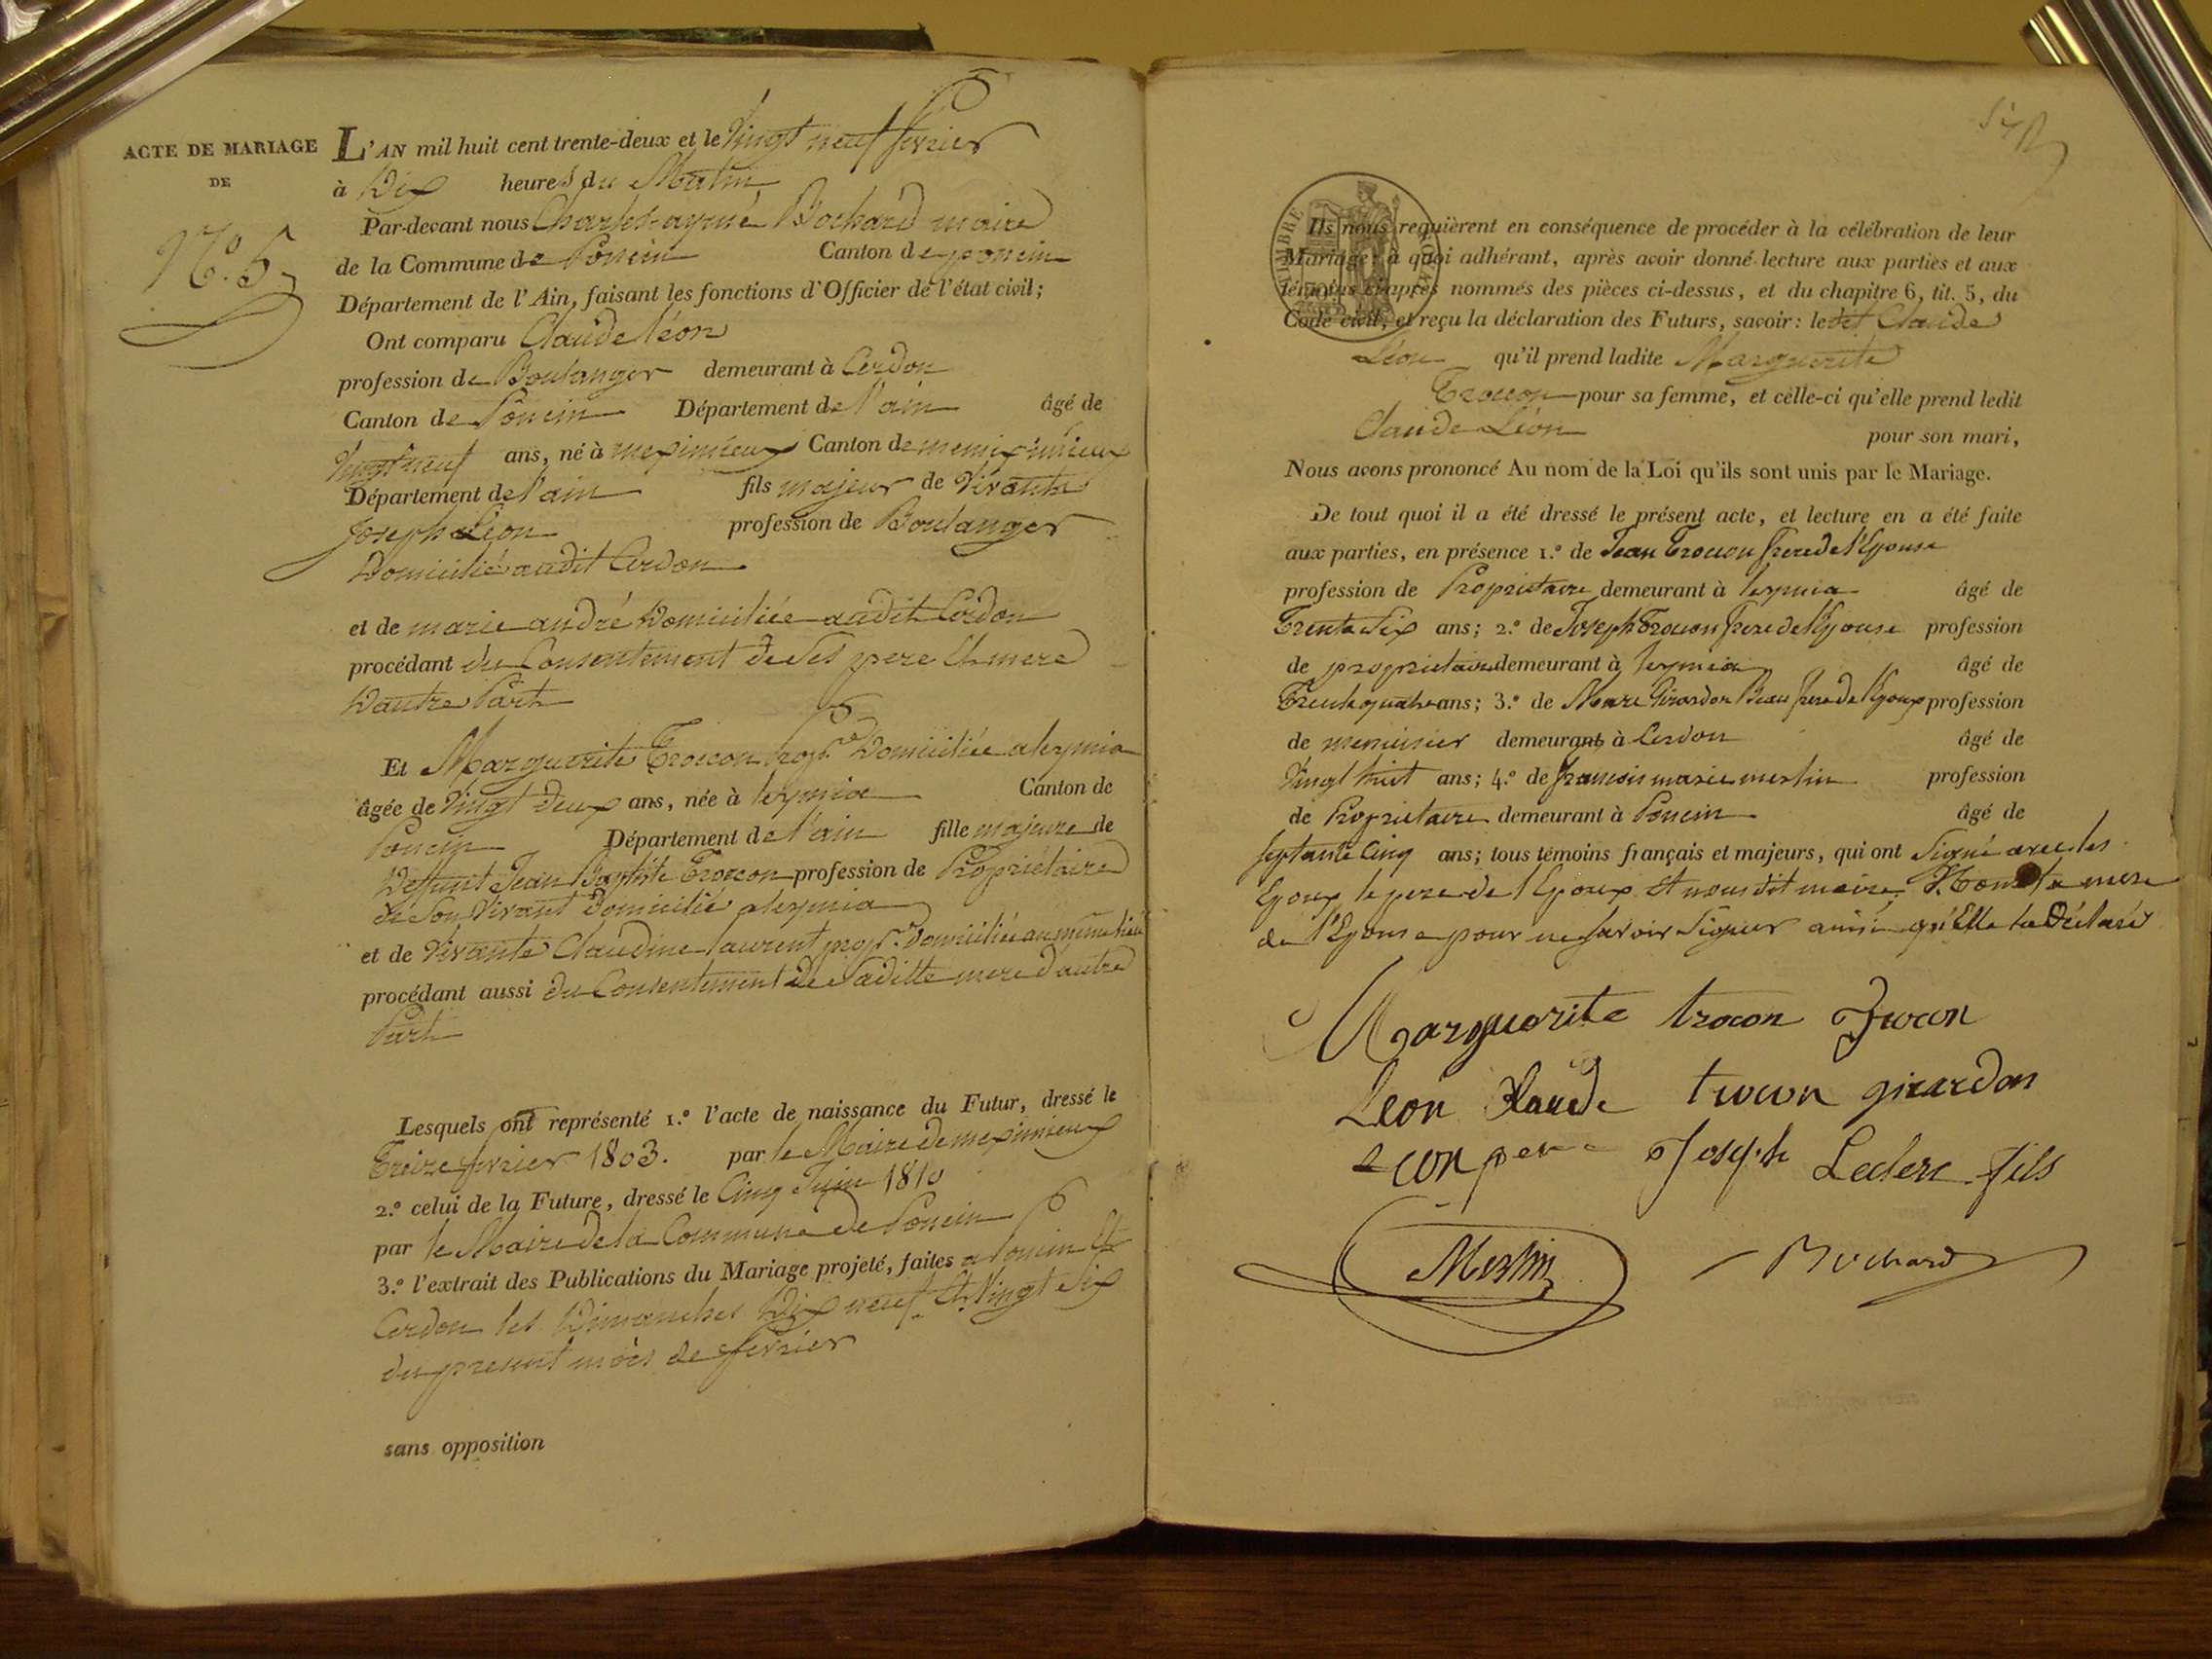 ACTE DE MARIAGE
DE
N.o 5
L'AN mil huit cent trente-deux et le Vingt neuf fevrier
à Dix heures du Matin
Par-devant nous Charles aymé Bochard maire
de la Commune de Poncin Canton de poncin
Département de l'Ain, faisant les fonctions d'Officier de l'état civil;
Ont comparu Claude léon
profession de Boulanger demeurant à Cerdon
Canton de Poncin Département de l'ain âgé de
Vingt neuf ans, né à meximieux Canton de meximieux
Département de l'ain fils majeur de Vivants
Joseph Léon profession de Boulanger
Domicilié audit Cerdon
et de marie andré Domiciliée audit Cerdon
procédant du Consentement de Ses pere & mere
D'autre Part
Et Marguerite Trocon prop.re Domiciliée a leymia
âgée de Vingt deux ans, née à leymia Canton de
Poncin Département de l'ain fille majeure de
Deffunt Jean Baptiste Trocon profession de Propriétaire
de Son Vivant Domicilié a leymia
et de Vivante Claudine laurent prop.re Domiciliée au même lieu
procédant aussi du Consentement de Saditte mere d'autre
Part
Lesquels ont représenté 1.o l'acte de naissance du Futur, dressé le
Treize fevrier 1803. par le Maire de meximieux
2.o celui de la Future, dressé le Cinq Juin 1810
par le Maire de la Commune de Poncin
3.o l'extrait des Publications du Mariage projeté, faites a Poncin &
Cerdon les Dimanches Dix neuf & Vingt Six
du present mois de fevrier
sans opposition
TIMBRE ROYAL
Ils nous requièrent en conséquence de procéder à la célébration de leur
Mariage; à quoi adhérant, après avoir donné lecture aux parties et aux
témoins ci-après nommés des pièces ci-dessus, et du chapitre 6, tit. 5, du
Code civil, et reçu la déclaration des Futurs, savoir: ledit Claude
Léon qu'il prend ladite Marguerite
Trocon pour sa femme, et celle-ci qu'elle prend ledit
Claude Léon pour son mari,
Nous avons prononcé Au nom de la Loi qu'ils sont unis par le Mariage.
De tout quoi il a été dressé le présent acte, et lecture en a été faite
aux parties, en présence 1.o de Jean Trocon frere de l'Epouse
profession de Propriétaire demeurant à leymia âgé de
Trente Six ans; 2.o de Joseph Trocon frere de l'Epouse profession
de propriétaire demeurant à leymia âgé de
Trente quatre ans; 3.o de Marc Girardon Beau frere de l'Epoux profession
de menuisier demeurant à Cerdon âgé de
Vingt huit ans; 4.o de françois marie merlin profession
de Propriétaire demeurant à Poncin âgé de
Septante Cinq ans; tous témoins français et majeurs, qui ont Signé avec les
Epoux le pere de l'Epoux Et nous dit maire Non la mere
de l'Epouse pour ne Savoir Signer ainsi qu'Elle la Déclaré
Marguerite trocon Trocon
Leon Claude trocon girardon
Leon pere Joseph Leclerc fils
Merlin Bochard